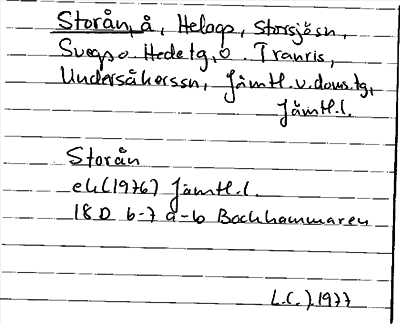 Storån, å, Helags, Storsjösn,
Svegs o. Hede tg, o. Tranris,
Undersåkerssn, Jämtl. v. doms.tg,
Jämtl.l.
Storån
ek (1976) Jämtl.l.
18 D 6-7 a-b Bachhammaren
L.C.J. 1977